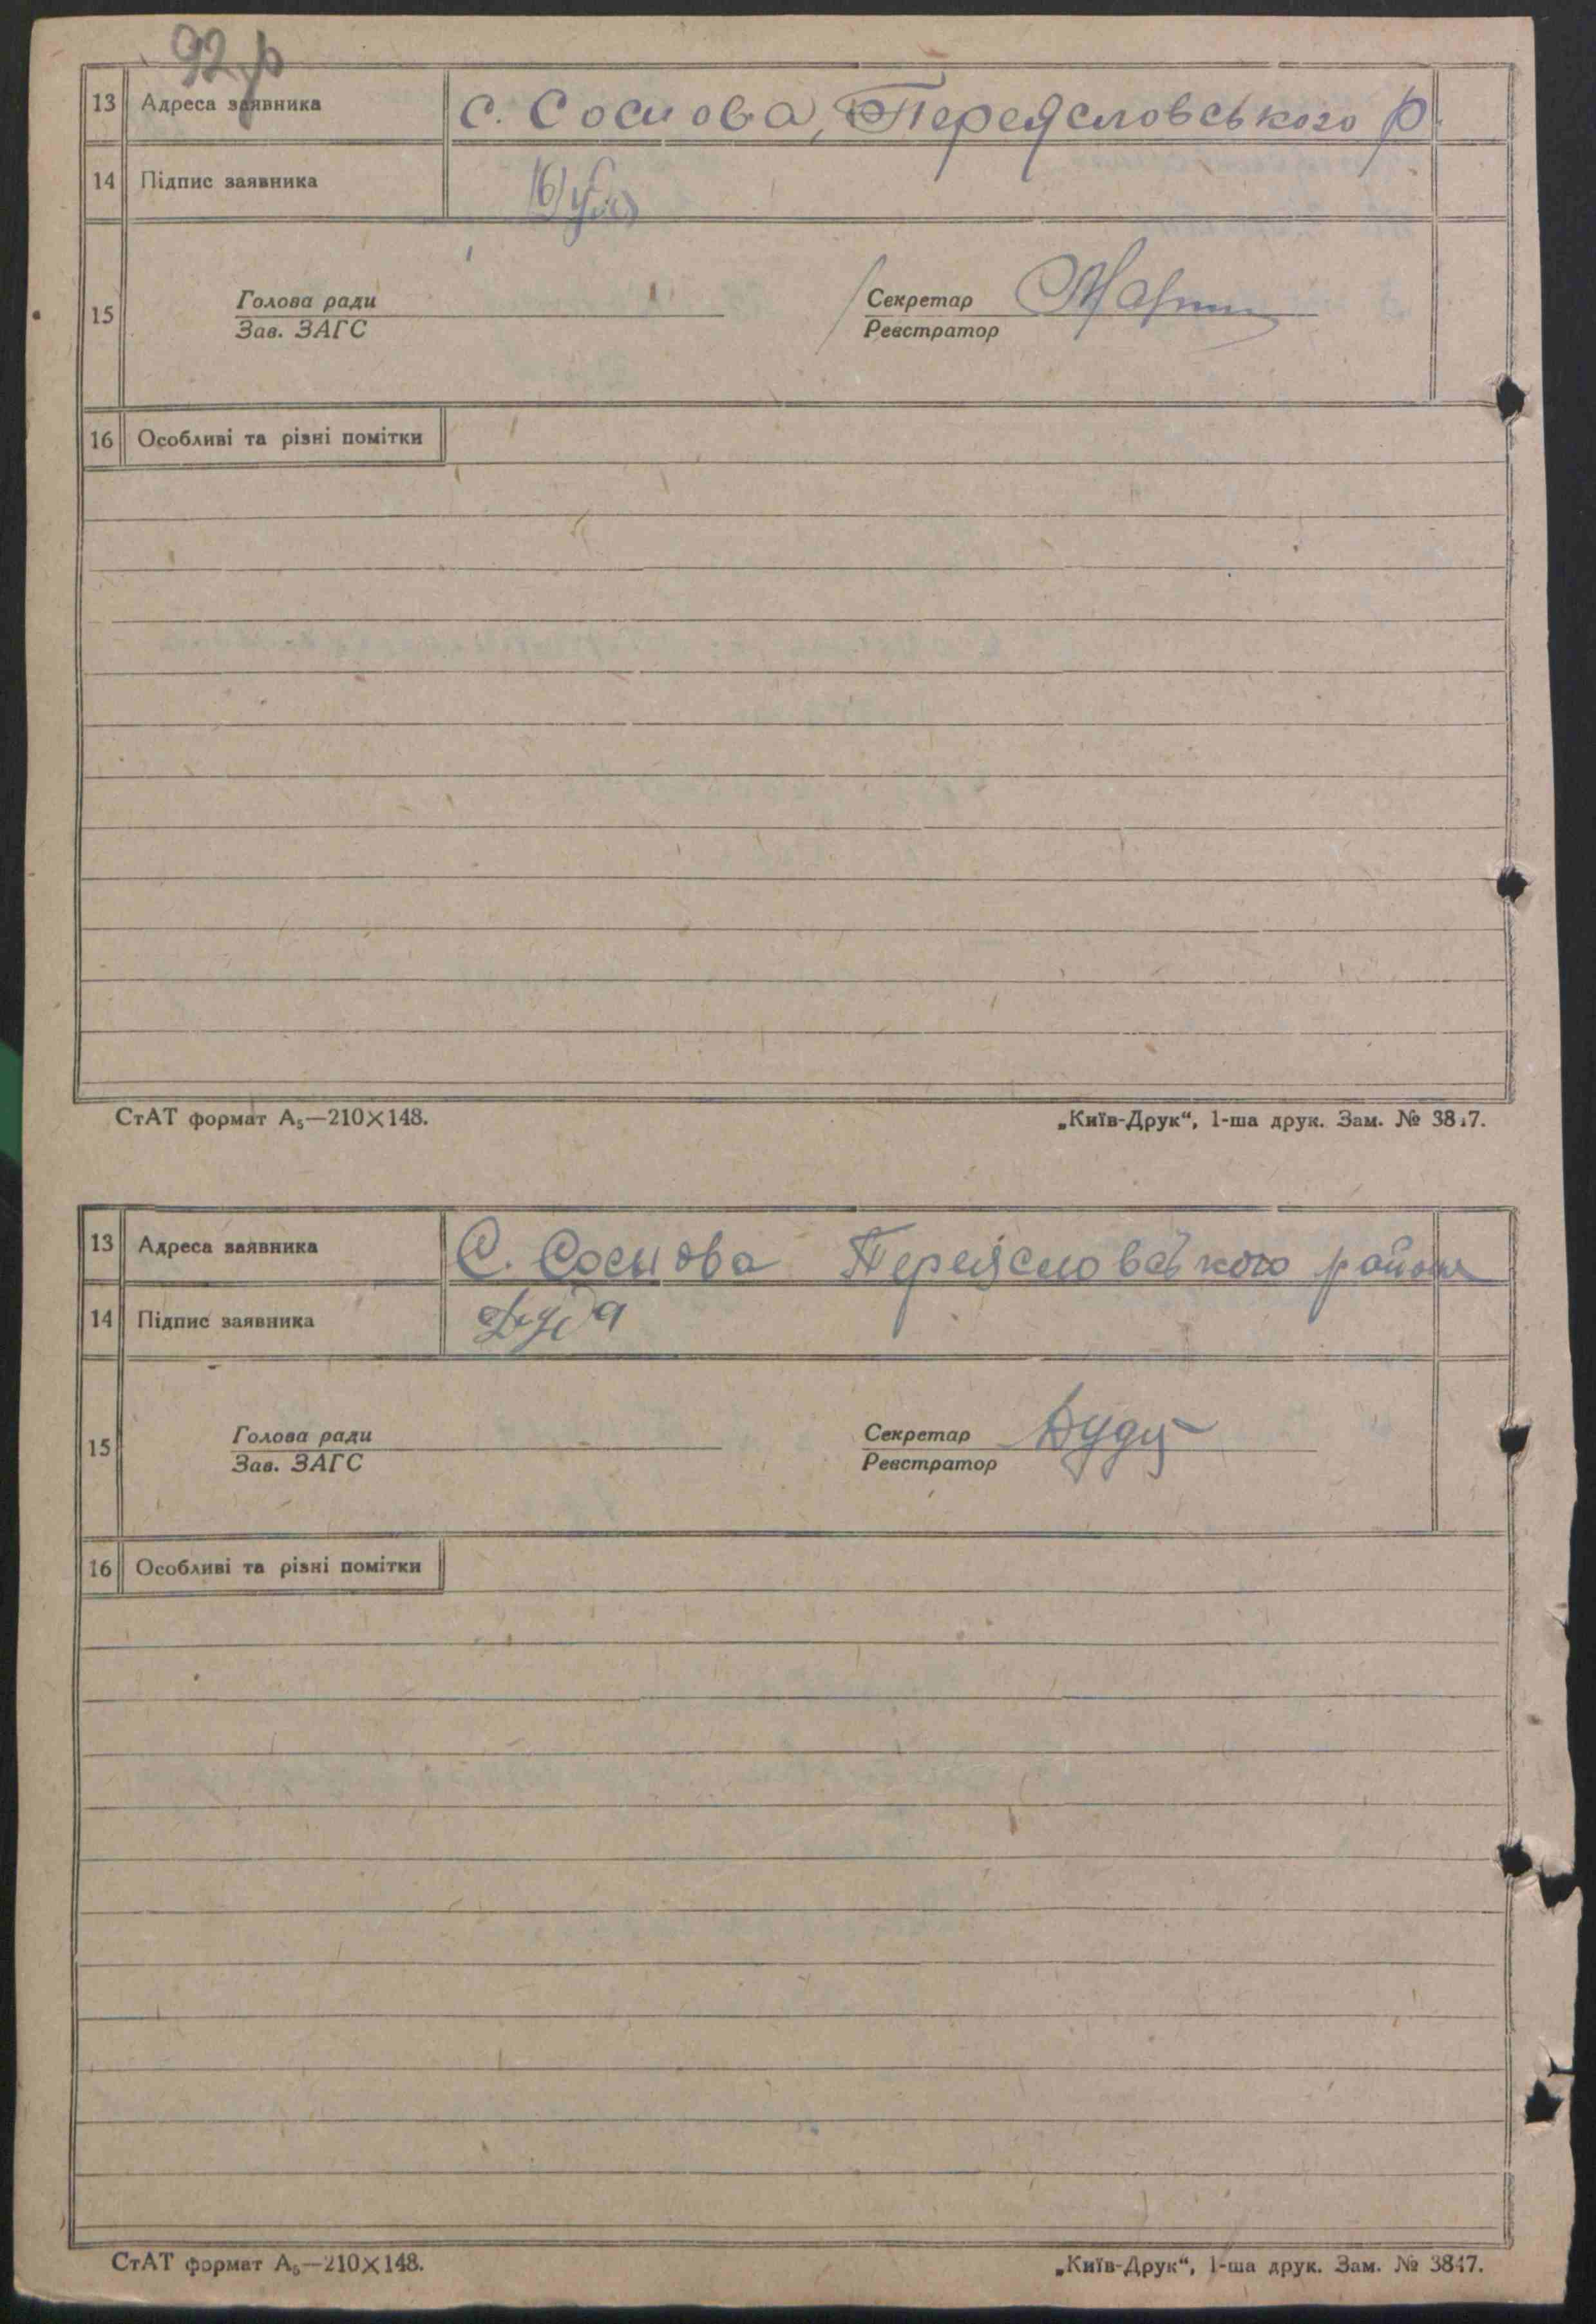 92 р
13 Адреса заявника с. Соснова, Переясловського р.
14 Підпис заявника
15 Голова ради Секретар
Зав. ЗАГС Реєстратор
16 Особливі та різні помітки
СтАТ формат А₅—210×148. „Київ-Друк“, 1-ша друк. Зам. № 3847.
13 Адреса заявника С. Соснова Переясловського району
14 Підпис заявника Дуда
15 Голова ради Секретар Дуду
Зав. ЗАГС Реєстратор
16 Особливі та різні помітки
СтАТ формат А₅—210×148. „Київ-Друк“, 1-ша друк. Зам. № 3847.